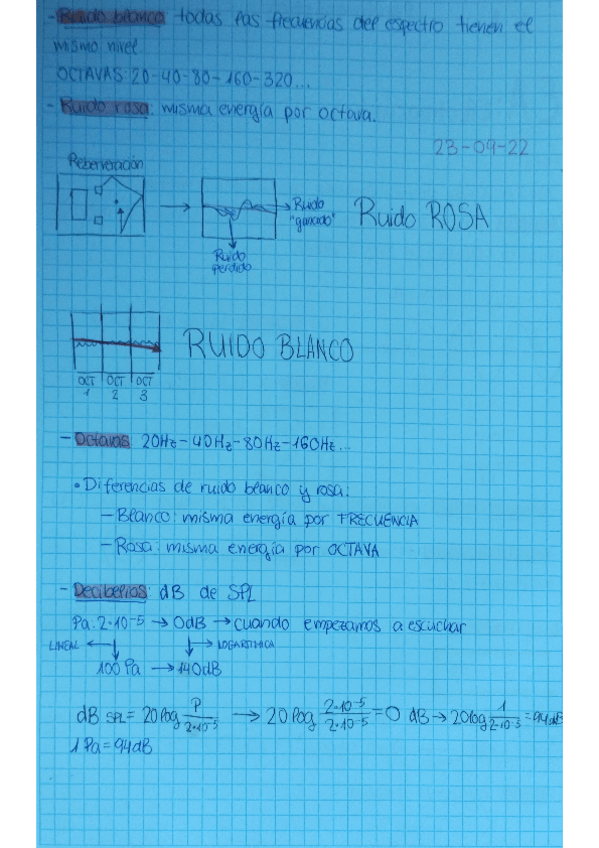 - Ruido blanco: todas las frecuencias del espectro tienen el
mismo nivel
OCTAVAS: 20-40-80-160-320...
- Ruido rosa: misma energía por octava.
23-09-22
Reberveración
Ruido "ganado"
Ruido perdido
Ruido ROSA
RUIDO BLANCO
OCT 1 OCT 2 OCT 3
- Octavas: 20Hz-40Hz-80Hz-160Hz...
• Diferencias de ruido blanco y rosa:
- Blanco: misma energía por FRECUENCIA
- Rosa: misma energía por OCTAVA
- Decibelios: dB de SPL
Pa: 2·10⁻⁵ → 0dB → cuando empezamos a escuchar
LINEAL ← ↓ ↓ → LOGARÍTMICA
100 Pa → 140dB
dB SPL = 20 log P/2·10⁻⁵ → 20 log 2·10⁻⁵/2·10⁻⁵ = 0 dB → 20 log 1/2·10⁻⁵ = 94dB
1 Pa = 94dB